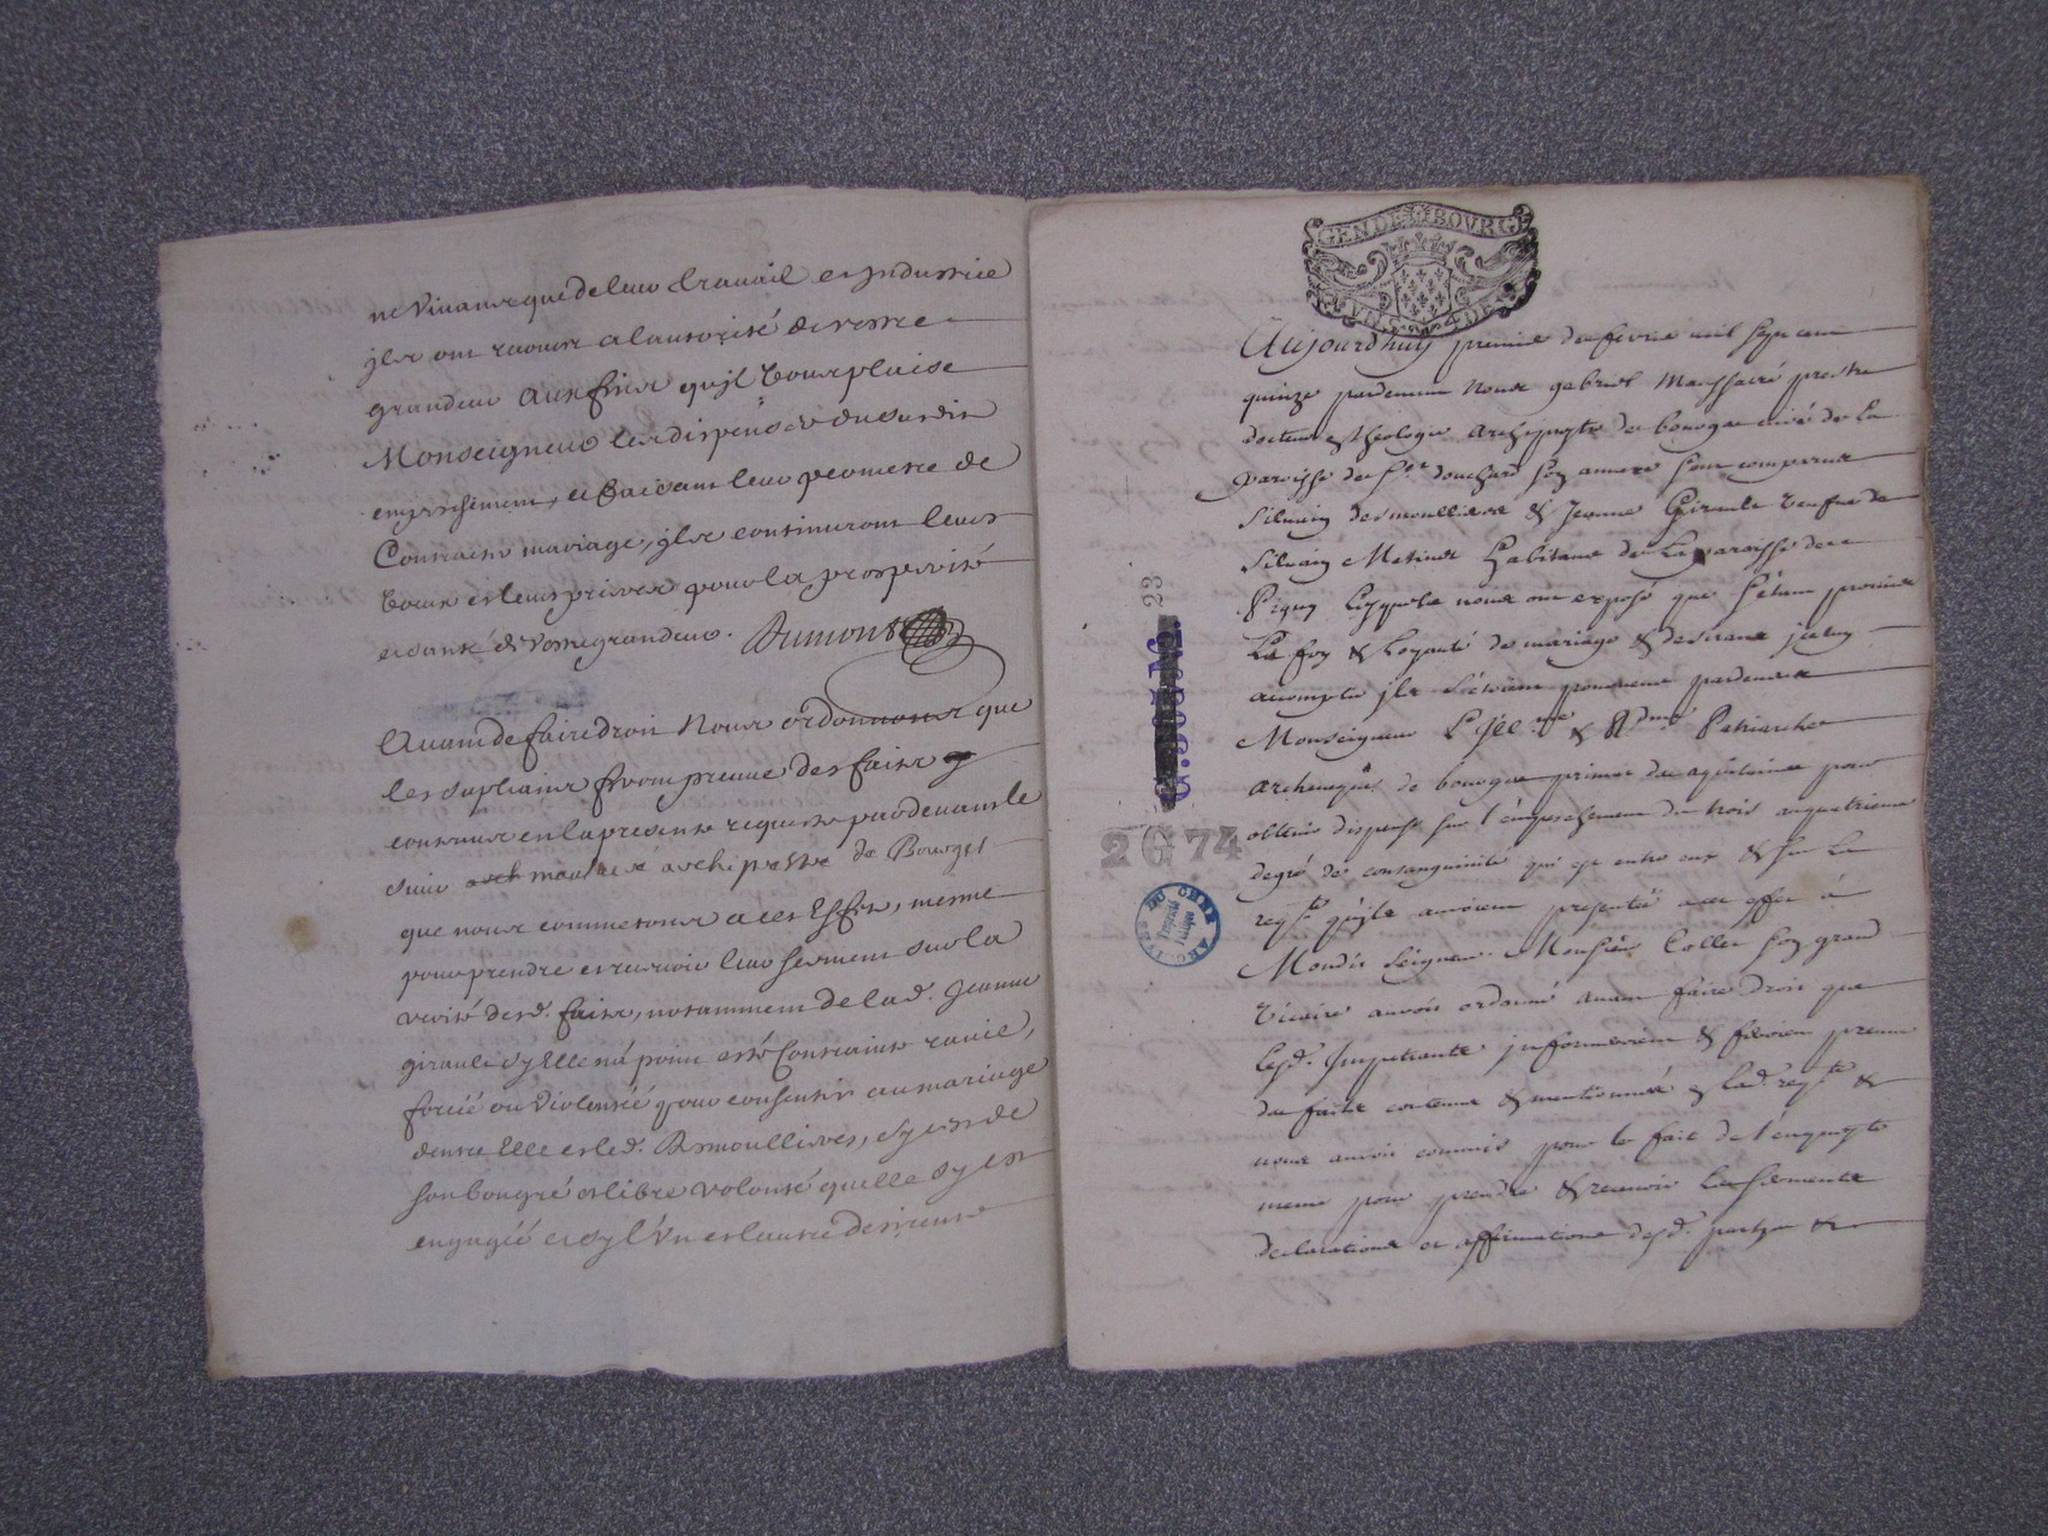 ne Vivants que de leur travail et Industrie
jls ont recours a lautorité de vostre
grandeur Aux fins qujl Vous plaise
Monseigneur les dispenser du susdit
empeschement, et faisant leur permettre de
Contracter mariage, jls continueront leurs
Vœux et leurs prieres pour la prosperité
et santé de Vostre grandeur. Dumont
Avant de faire droit Nous ordonnons que
les supliants feront preuve des faits
contenus en la presente requeste pardevant le
sieur massacré archiprestre de Bourges
que nous commetons a cet Effet, mesme
pour prendre et recevoir leur serment sur la
verité desd. faits, notamment de lad. Jeanne
girault sy Elle na point esté Contrainte ravie,
forcée ou Violentée pour consentir au mariage
dentre Elle et led. Desmoullieres, sy cest de
son bon gré et libre volonté quelle sy est
engagée et sy lVn et lautre desirent
GEN DE BOVRG
Aujourdhuy premier de fevrie mil sept cent
quinze pardevant Nous gabriel Massacré prestre
docteur en theologie Archiprestre de bourges curé de la
paroisse de St. douchard son annexe sont comparus
Silvain desmoullieres & Jeanne Girault veufue de
Silvain Metinet habitans de la paroisse de
Pigny Lesquels nous ont exposé que s'étant promis
La foy & Loyauté de mariage & desirans jceluy
accomplir jls s'étoient pourveus pardevant
Monseigneur L'Jll.me & R.me Patriarche
archeveque de bourges primat des aquitaines pour
obtenir dispense sur l'empeschement du trois au quatrieme
degré de consanguinité qui est entre eux & sur la
req.te qu'jls auroient presentée a cet effet à
Mondit Seigneur Monsieur Collet son grand
Vicaire auroit ordonné avant faire droit que
lesd. Impetrants jnformeroient & feroient preuve
des faits contenus & mentionnés en lad. req.te &
nous auroit commis pour le fait de l'enqueste
meme pour prendre & recevoir les serments
declarations et affirmations desd. parties &
23
2 G 74
ARCHIVES DU CHER